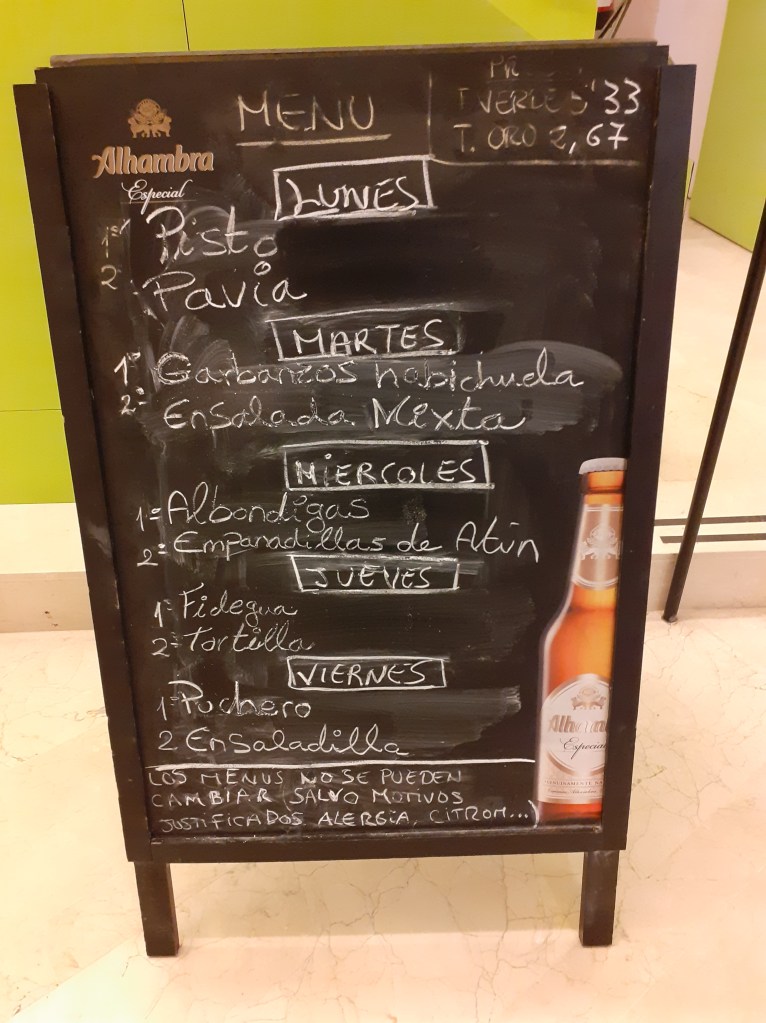 Alhambra
Especial
MENU
PR
T. VERDE 5'33
T. ORO 2,67
LUNES
1º Pisto
2º Pavia
MARTES
1º Garbanzos habichuela
2º Ensalada Mixta
MIERCOLES
1º Albondigas
2º Empanadillas de Atún
JUEVES
1º Fidegua
2º Tortilla
VIERNES
1º Puchero
2 Ensaladilla
LOS MENUS NO SE PUEDEN
CAMBIAR (SALVO MOTIVOS
JUSTIFICADOS ALERGIA, CITROM...)
Alhambra
Especial